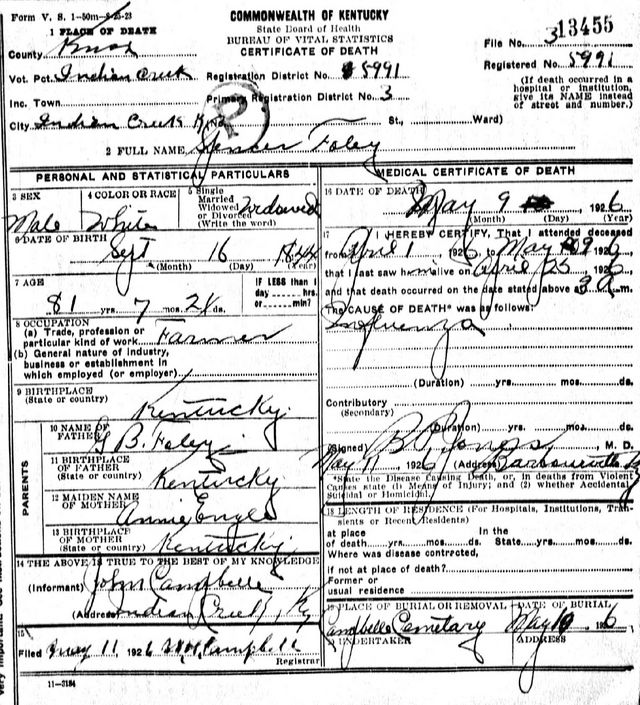 Form V. S. 1-50m-5-25-23
COMMONWEALTH OF KENTUCKY
State Board of Health
BUREAU OF VITAL STATISTICS
CERTIFICATE OF DEATH
1 PLACE OF DEATH
County Knox
File No. 3 13455
Registered No. 5991
Vot. Pct. Indian Creek Registration District No. 5991
(If death occurred in a hospital or institution, give its NAME instead of street and number.)
Inc. Town Primary Registration District No. 3
City Indian Creek St., Ward)
2 FULL NAME Spencer Foley
PERSONAL AND STATISTICAL PARTICULARS
3 SEX
Male
4 COLOR OR RACE
White
5 Single
Married
Widowed
or Divorced
(Write the word)
Widowed
6 DATE OF BIRTH
Sept 16 1844
(Month) (Day) (Year)
7 AGE
81 yrs. 7 mos. 24 ds.
IF LESS than 1
day hrs.
or min?
8 OCCUPATION
(a) Trade, profession or
particular kind of work Farmer
(b) General nature of industry,
business or establishment in
which employed (or employer)
9 BIRTHPLACE
(State or country)
Kentucky
PARENTS
10 NAME OF
FATHER B. Foley
11 BIRTHPLACE
OF FATHER
(State or country) Kentucky
12 MAIDEN NAME
OF MOTHER Annie Engle
13 BIRTHPLACE
OF MOTHER
(State or country) Kentucky
14 THE ABOVE IS TRUE TO THE BEST OF MY KNOWLEDGE
(Informant) John Campbelle
(Address) Indian Creek, Ky
15
Filed May 11, 1926 Campbelle
Registrar
11-3184
MEDICAL CERTIFICATE OF DEATH
16 DATE OF DEATH
May 9 1926
(Month) (Day) (Year)
17 I HEREBY CERTIFY, That I attended deceased
from April 1 1926 to May 9 1926
that I last saw him alive on April 25 1926
and that death occurred on the date stated above at 3 a m.
The CAUSE OF DEATH* was as follows:
Influenza
(Duration) yrs. mos. ds.
Contributory
(Secondary)
(Duration) yrs. mos. ds.
(Signed) B. P. Jones, M. D.
May 11 1926 (Address) Barbourville Ky
*State the Disease Causing Death, or, in deaths from Violent
Causes state (1) Means of Injury; and (2) whether Accidental
Suicidal or Homicidal.
18 LENGTH OF RESIDENCE (For Hospitals, Institutions, Tran-
sients or Recent Residents)
at place In the
of death yrs. mos. ds. State yrs. mos. ds.
Where was disease contrcted,
if not at place of death?
Former or
usual residence
19 PLACE OF BURIAL OR REMOVAL DATE OF BURIAL
Campbelle Cemetary May 10 1926
UNDERTAKER ADDRESS